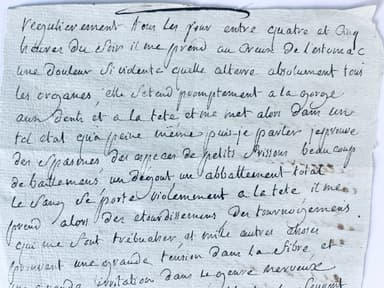 régulierement tous les jour entre quatre et cinq
heures du soir il me prend au creux de l'estomac
une douleur si violente quelle altere absolument tous
les organes elle s'etend promptement a la gorge
aux dents et a la tete et me met alors dans un
tel etat qu'a peine même puis-je parler j'eprouve
des spasmes des especes de petits frissons beaucoup
de baillemens un dégout un abbattement total
le sang se porte violemment a la tete il me
prend alors des etourdissemens des tournoiemens
qui me font trébucher, et mille autres choses
prouvant une grande tension dans la fibre et
une grande irritation dans le genre nerveux